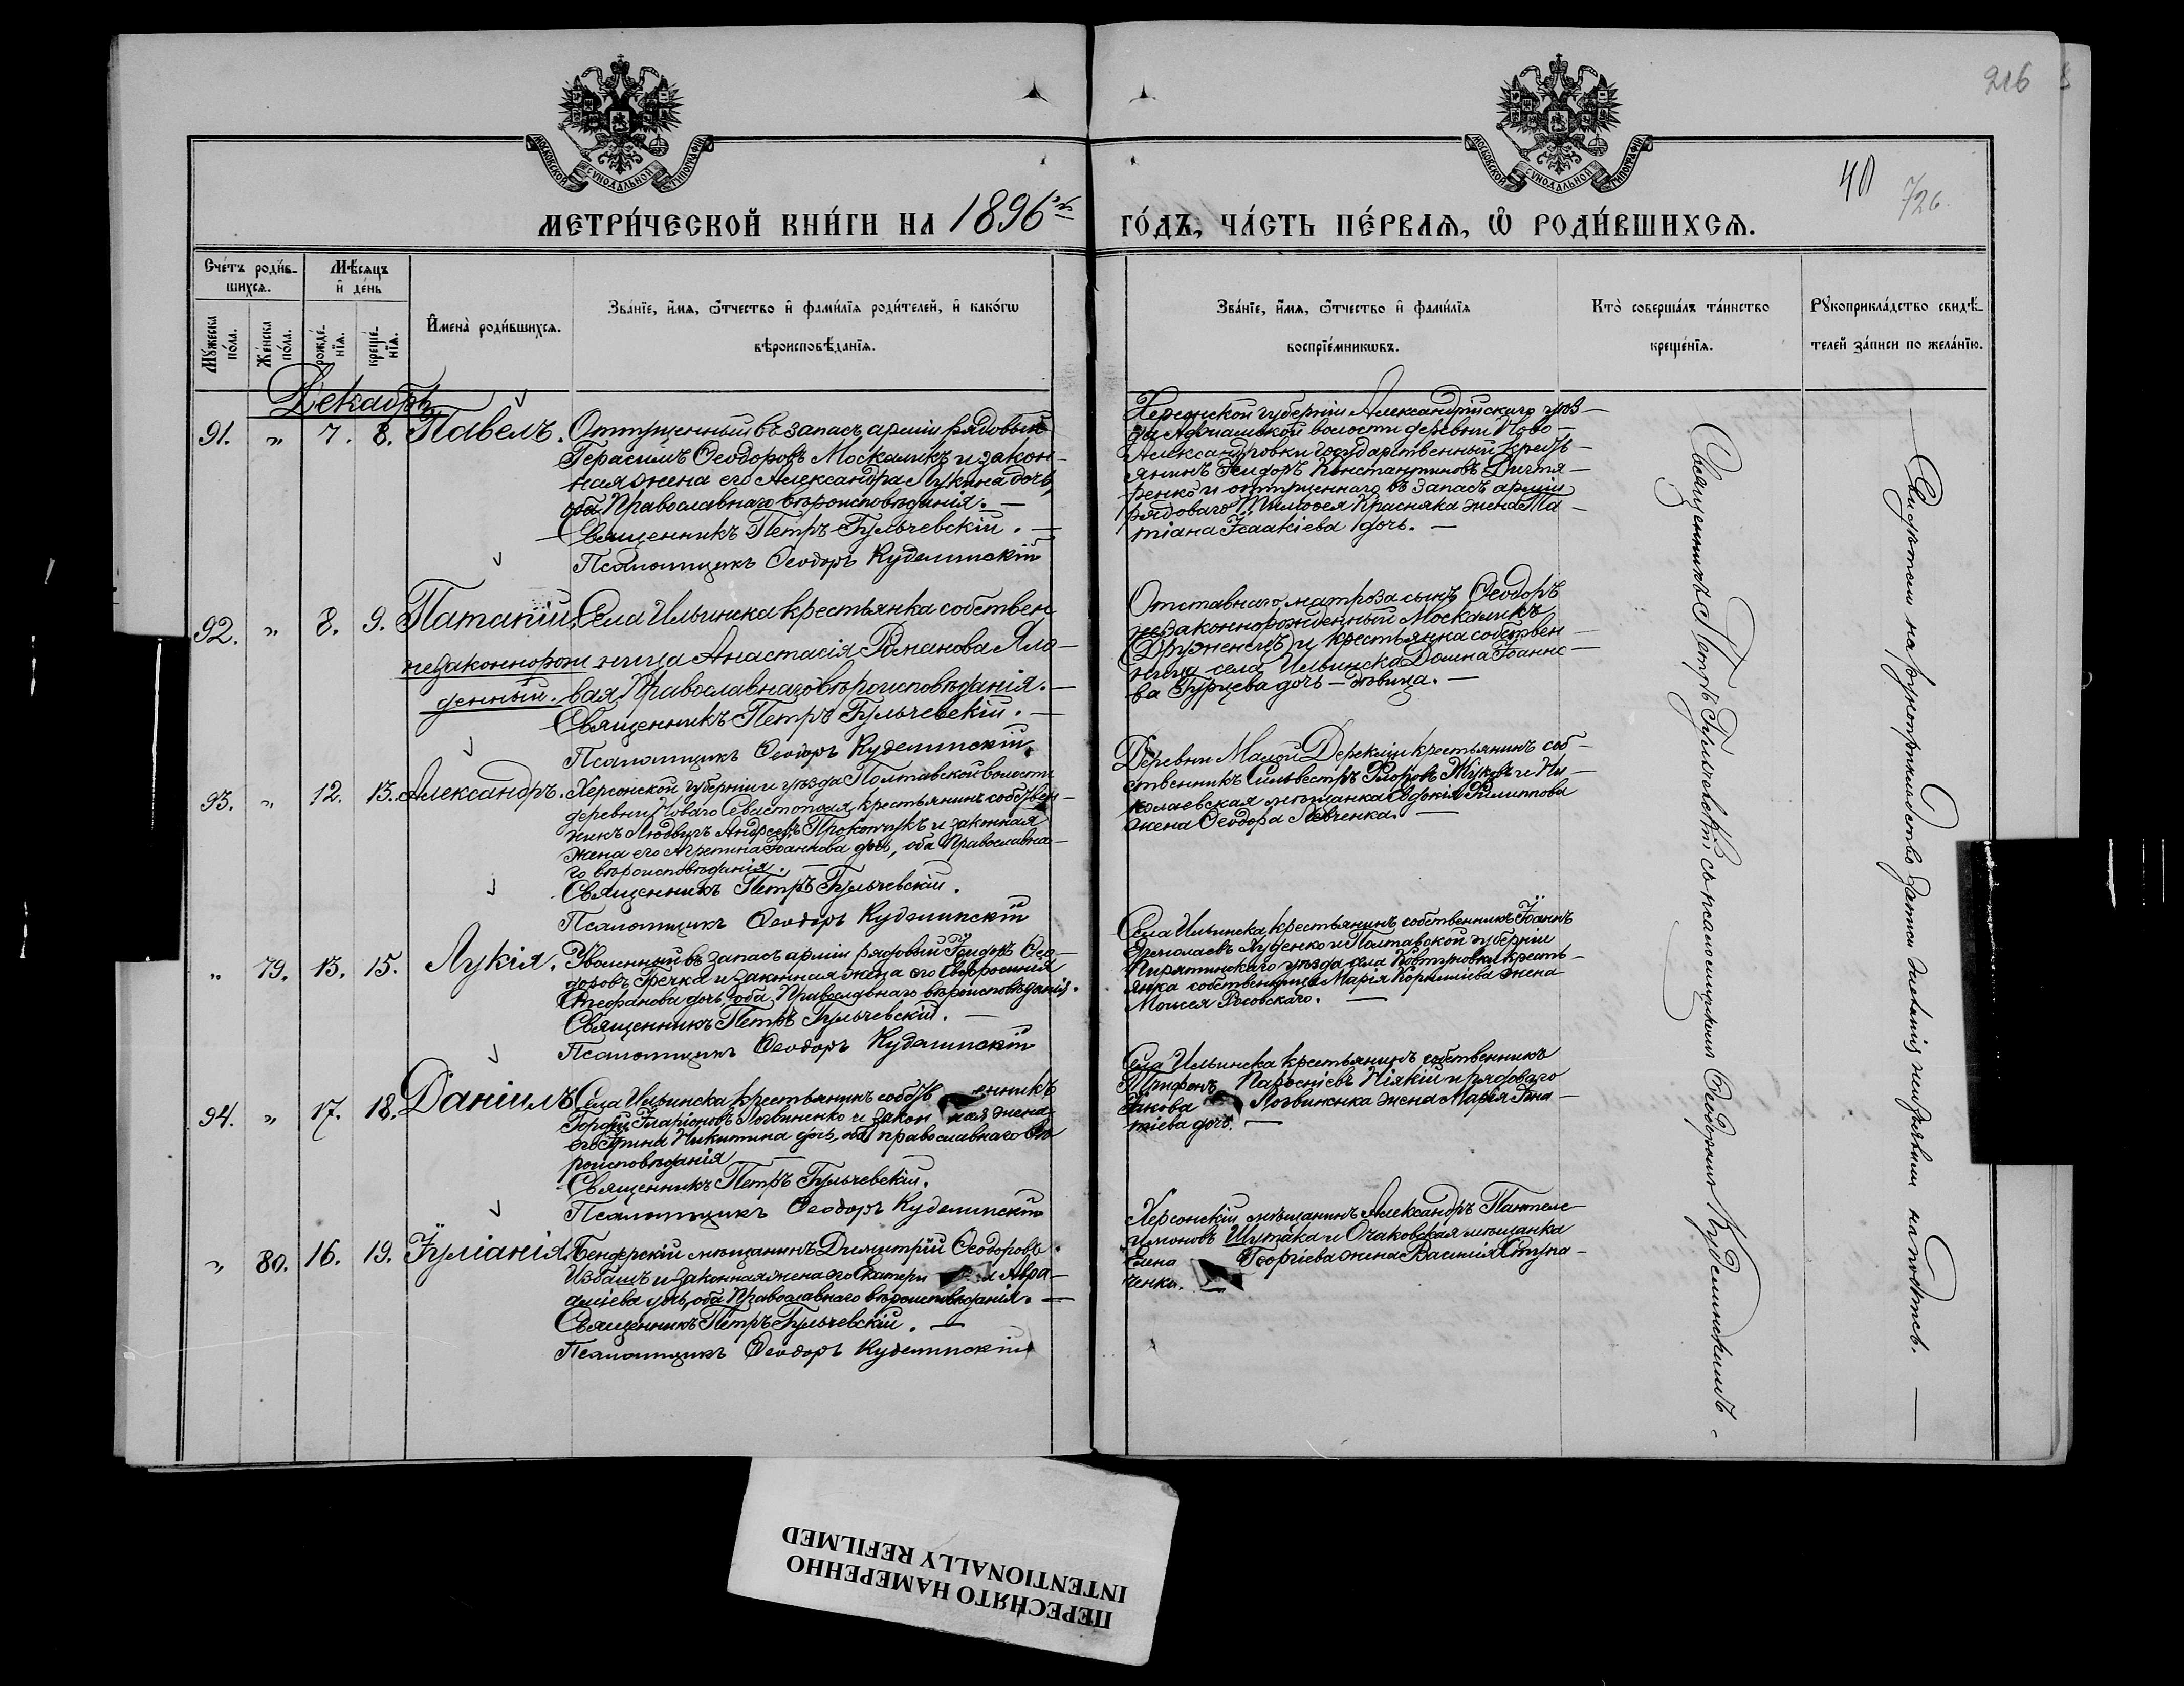 216
40
726.
МОСКОВСКОЙ СѴНОДАЛЬНОЙ ТИПОГРАФІИ
МОСКОВСКОЙ СѴНОДАЛЬНОЙ ТИПОГРАФІИ
МЕТРИ́ЧЕСКОЙ КНИ́ГИ НА 1896й
ГО́ДЪ, ЧА́СТЬ ПЕ́РВАѦ, Ѡ҆ РОДИ́ВШИХСѦ.
Сче́тъ роди́в-
шихсѧ.
Мѣ́сѧцъ
и҆ де́нь
Мꙋ́жеска по́ла.
Же́нска по́ла.
рожде́-нїѧ.
креще́-нїѧ.
И҆мена̀ роди́вшихсѧ.
Зва́нїе, и҆́мѧ, ѻ҆́тчество и҆ фами́лїѧ роди́телей, и҆ како́гѡ
вѣроисповѣ́данїѧ.
Зва́нїе, и҆́мѧ, ѻ҆́тчество и҆ фами́лїѧ
воспрїе́мникѡвъ.
Кто̀ соверша́лъ та́инство
креще́нїѧ.
Рꙋкоприкла́дство свидѣ́-
телей за́писи по жела́нїю.
Декабрь
91. " 7. 8. Павелъ.
Отпущенный въ запасъ арміи рядовый
Герасимъ Ѳеодоровъ Москаликъ и закон-
ная жена его Александра Лукина дочь,
оба Православнаго вѣроисповѣданія. —
Священникъ Петръ Бульчевскій. —
Псаломщикъ Ѳеодоръ Куделинскій
Херсонской губерніи Александрійскаго уѣз-
да волости деревни Ново-
Александровки государственный кресть-
янинъ Константиновъ
ренко и отпущеннаго въ запасъ арміи
рядоваго Тимоѳея Красняка жена Та-
тіана Ісаакіева дочь. —
92. " 8. 9. Патапій
незаконнорож
денный.
Села Ильинска крестьянка собствен
ница Анастасія Романова Яло-
вая Православнаго вѣроисповѣданія. —
Священникъ Петръ Бульчевскій. —
Псаломщикъ Ѳеодоръ Куделинскій.
Отставнаго матроза сынъ Ѳеодоръ
незаконнорожденный Москаликъ
и крестьянка собствен-
ница села Ильинска Домна Іоанно-
ва Гурцева дочь — дѣвица. —
93. " 12. 13. Александръ.
Херсонской губерніи и уѣзда Полтавской волости
деревни Новаго Севастополя крестьянинъ собствен-
никъ Людвигъ Андреевъ Прокопчукъ и законная
жена его Агрепина Іоаннова дочь, оба Православна-
го вѣроисповѣданія. —
Священникъ Петръ Бульчевскій.
Псаломщикъ Ѳеодоръ Куделинскій
Деревни Малой Дереклеи крестьянинъ соб-
ственникъ Сильвестръ Флоровъ Жуковъ и Ни-
колаевская мѣщанка Евдокія Филиппова
жена Ѳеодора Левченка. —
" 79. 13. 15. Лукія.
Уволенный въ запасъ арміи рядовый Ісидоръ Ѳео-
доровъ Гречка и законная жена его Евфросинія
Стефанова дочь, оба Православнаго вѣроисповѣданія.
Священникъ Петръ Бульчевскій. —
Псаломщикъ Ѳеодоръ Куделинскій
Села Ильинска крестьянинъ собственникъ Іоаннъ
Ермолаевъ Луденко и Полтавской губерніи
Пирятинскаго уѣзда села кресть-
янка собственница Марія Корниліева жена
Моисея Росовскаго. —
94. " 17. 18. Даніилъ
Села Ильинска крестьянинъ собств енникъ
Гордѣй Иларіоновъ Логвиненко и закон ная жена
его Ирина Никитина дочь, оба православнаго вѣ
роисповѣданія
Священникъ Петръ Бульчевскій.
Псаломщикъ Ѳеодоръ Куделинскій
Села Ильинска крестьянинъ собственникъ
Трифонъ Парѳеніевъ Ніякій и рядоваго
Іакова Логвиненка жена Марія Игна-
тіева дочь. —
" 80. 16. 19. Іуліанія.
Бендерскій мѣщанинъ Димитрій Ѳеодоровъ
Избашъ и законная жена его Екатери на Авра-
аміева дочь, оба Православнаго вѣроисповѣданія. —
Священникъ Петръ Бульчевскій. —
Псаломщикъ Ѳеодоръ Куделинскій
Херсонскій мѣщанинъ Александръ Пантеле-
имоновъ Шутака и Очаковская мѣщанка
Елена Георгіева жена Василія Ступа-
ченка. —
Священникъ Петръ Бульчевскій съ псаломщикомъ Ѳеодоромъ Куделинскимъ.
Свидѣтели на рукоприкладство записи желанія неизъявили
ПЕРЕСНЯТО НАМЕРЕННО
INTENTIONALLY REFILMED